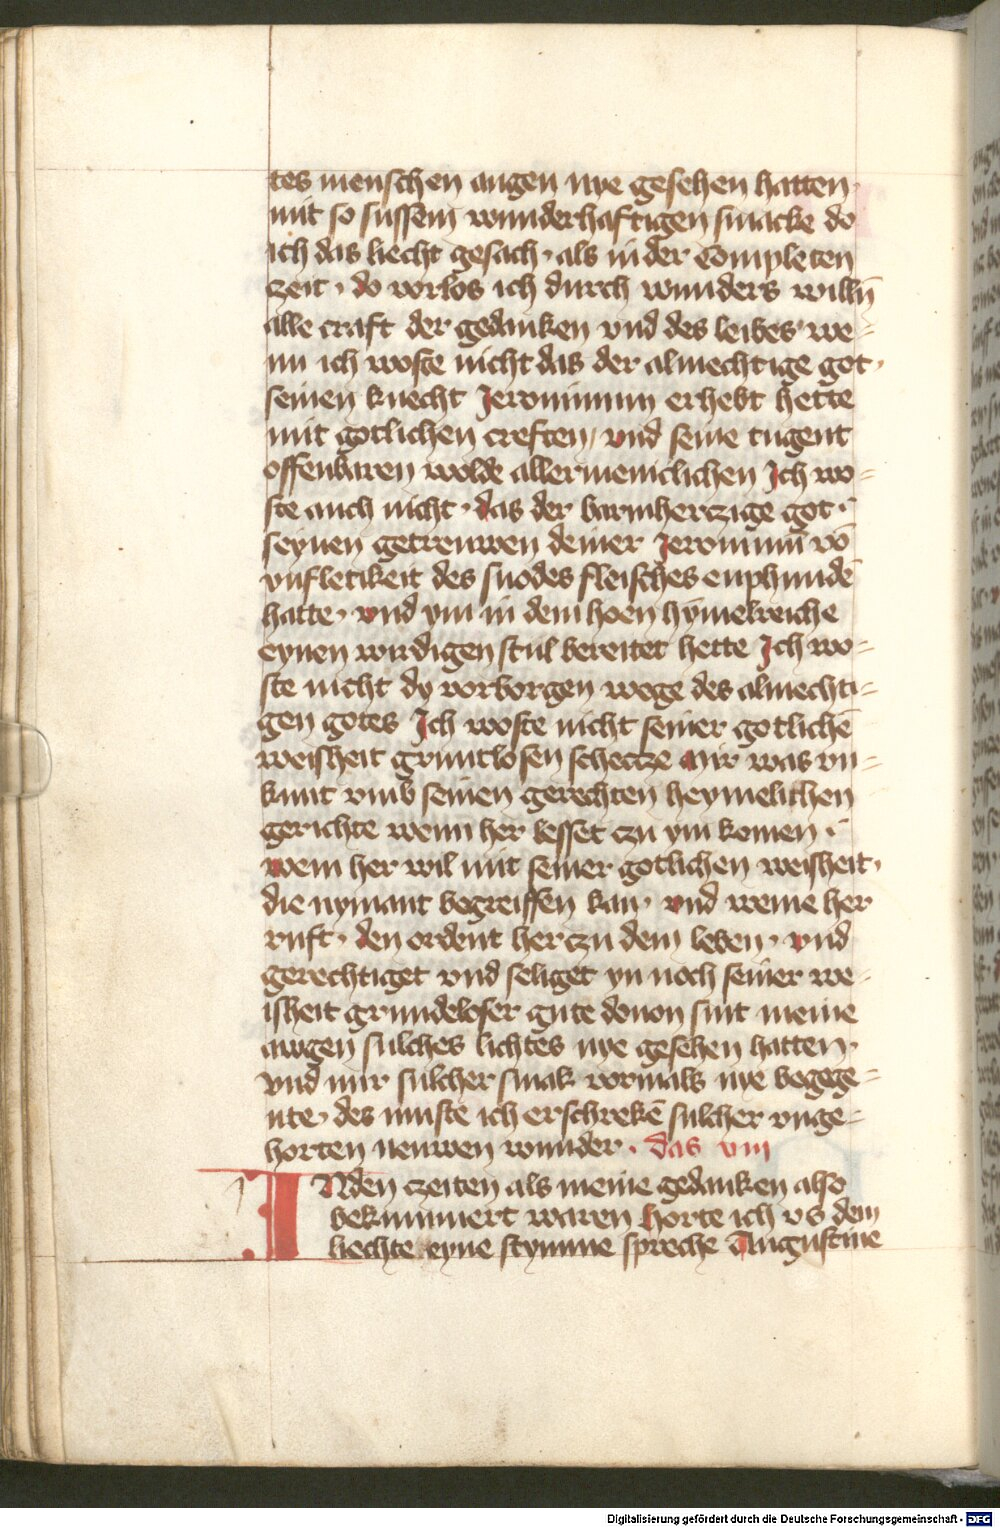 tes menschen augen nye gesehen hatten ·
mit so sussem wunderhaftigen smacke do
ich das liecht gesach · als in der Completen
zeit · do vorlos ich durch wunders willn̄
alle craft der gedanken vnd des leibes · we⸗
nn ich woste nicht das der almechtige got ·
seinen knecht Jeronimum erhebt hette
mit gotlichen creften / vnd seine tugent
offenbaren wolde allermeniclichen Ich wo⸗
ste auch nicht · das der barmherczige got ·
seynen getreuwen deiner Jeronimū vō
vnfletikeit des snodes fleisches enphundē
hatte · vnd ym in dem hoen hymelreiche
eynen wirdigen stul bereitet hette Ich wo⸗
ste nicht dy vorborgen wege des almechti⸗
gen gotes Ich woste nicht seiner gotlichē
weisheit gruntlosen schecze mir was vn⸗
kunt vmb seinen gerechten heymelichen
gerichte wenn her lesset zu ym komen ·
wem her wil mit seiner gotlichen weisheit ·
die nymant begreiffen kan · vnd weme her
ruft · den ordent her czu dem leben · vnd
gerechtiget vnd seliget yn noch seiner we⸗
isheit grundeloser gute donon sint meine
awgen sulches lichtes nye gesehen hatten ·
vnd mir sulcher smak vormals nye begege⸗
nte · des muste ich erschrekē sulcher vnge⸗
horten neuwen wunder · das viij
INden zeiten als meine gedanken also
bekummert waren horte ich vs dem
liechte eyne stymme spreche Augustine
Digitalisierung gefördert durch die Deutsche Forschungsgemeinschaft - DFG